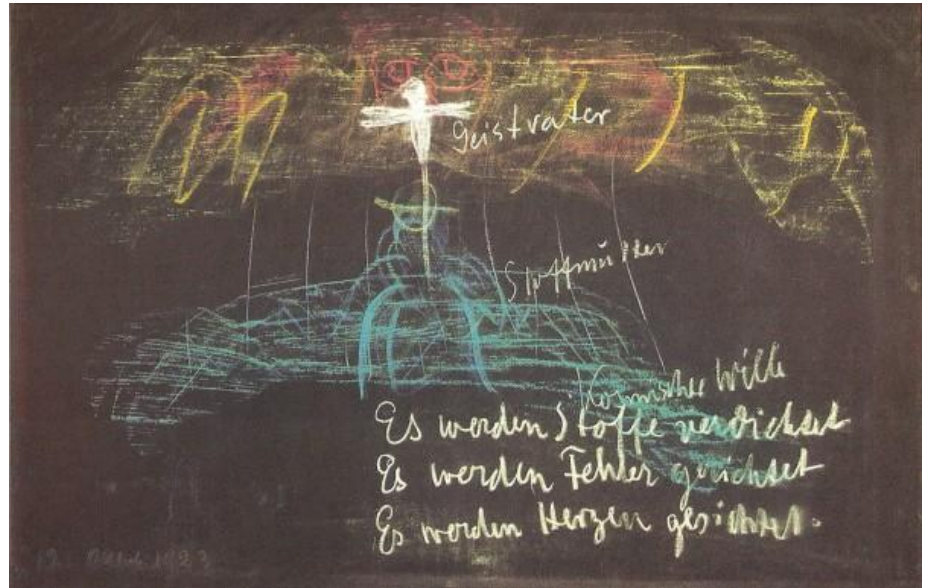 Geistvater
Stoffmutter
Kosmischer Wille
Es werden Stoffe verdichtet
Es werden Fehler gerichtet
Es werden Herzen gesichtet.
12. 1923